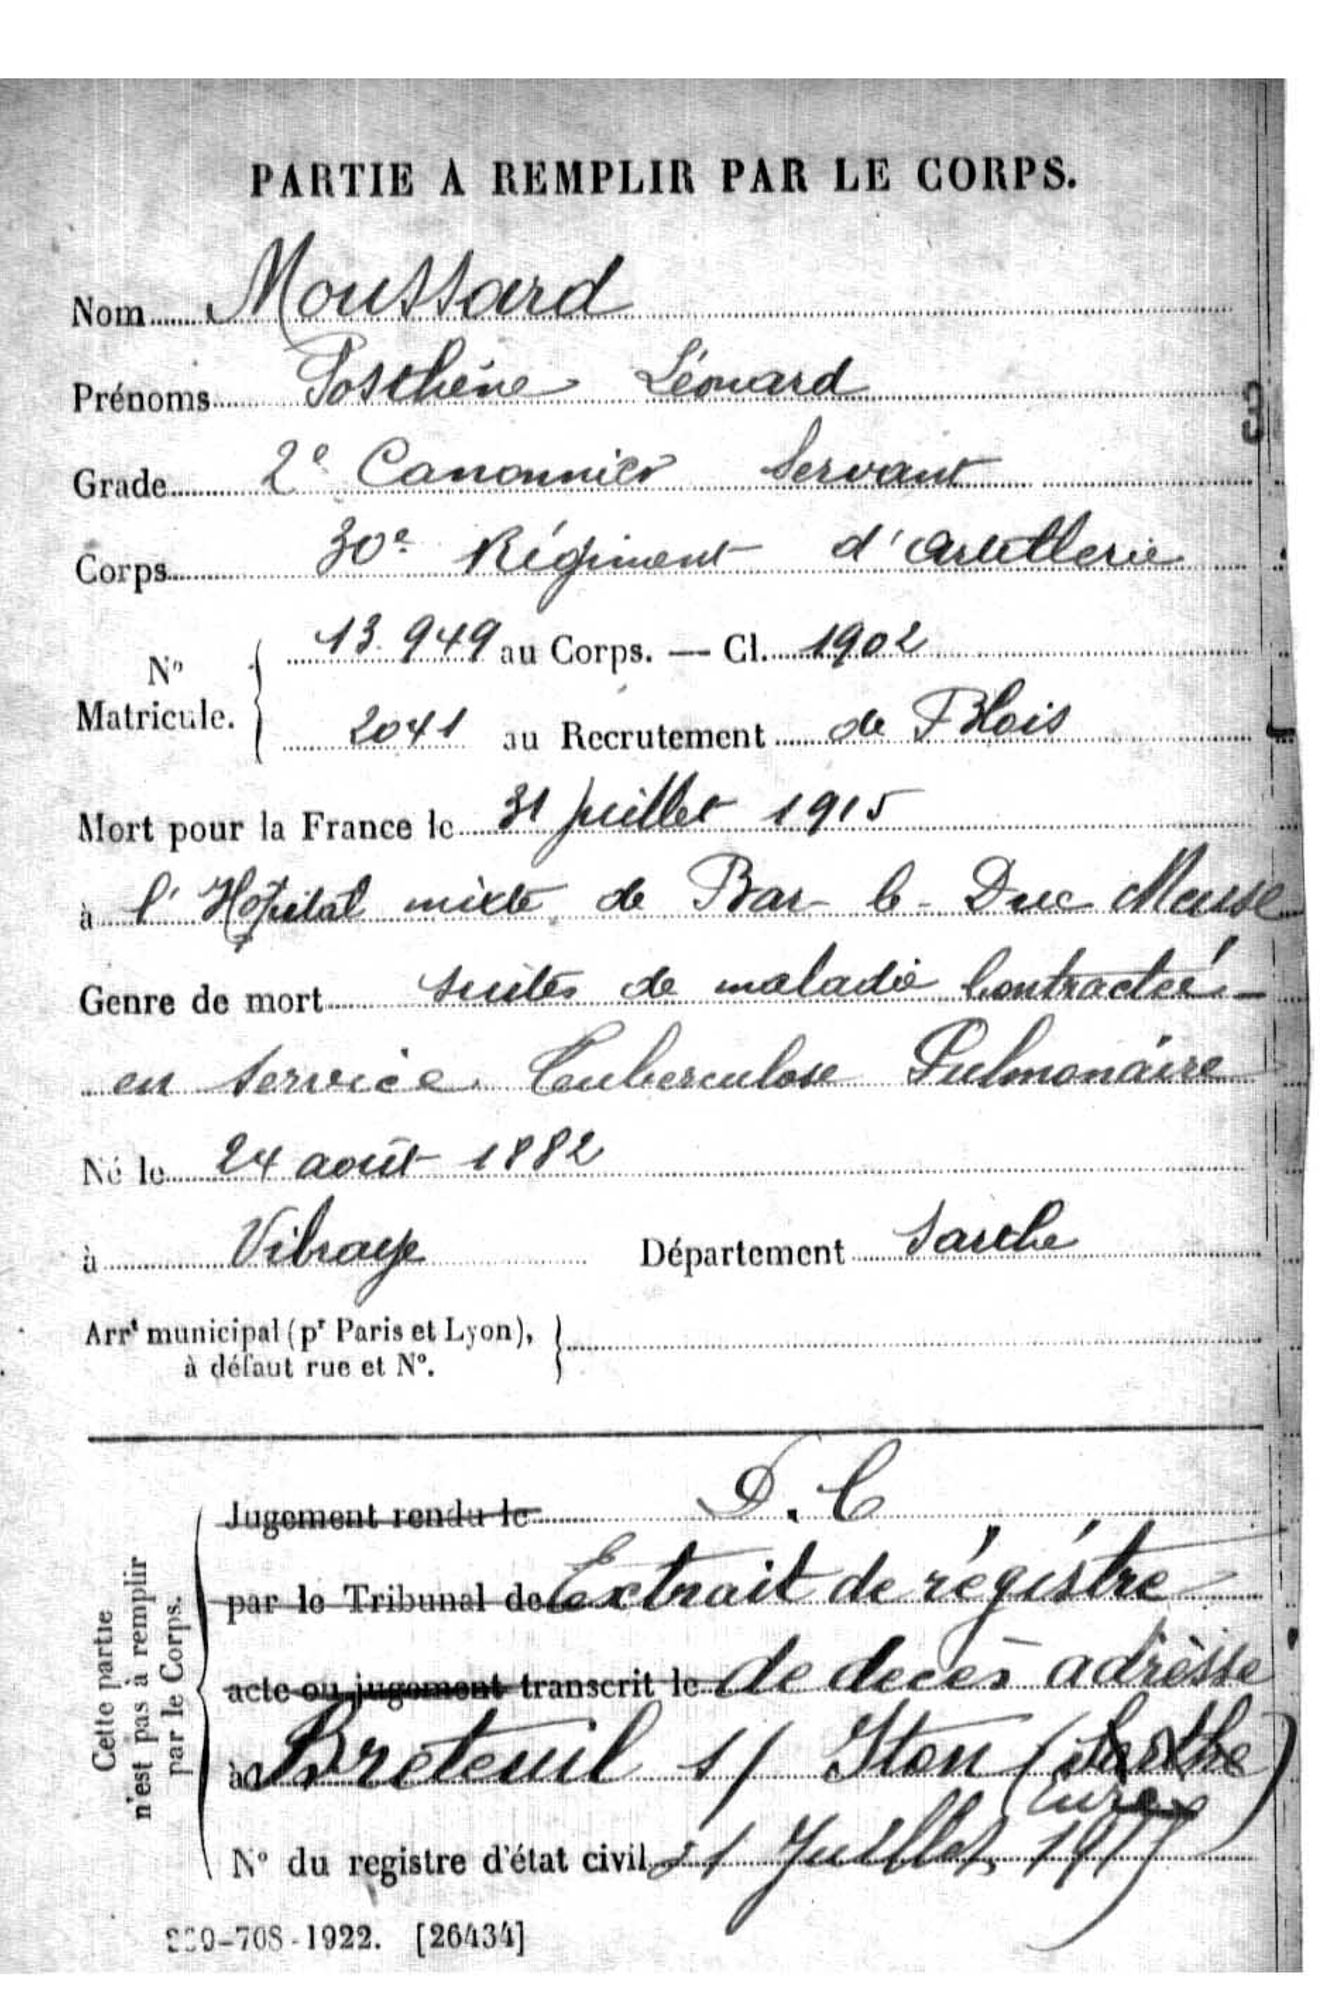 PARTIE A REMPLIR PAR LE CORPS.
Nom Moussard
Prénoms Posthène Léonard
Grade 2e Canonnier Servant
Corps 30e Régiment d'artillerie
N° Matricule. 13.949 au Corps. — Cl. 1902
2041 au Recrutement de Blois
Mort pour la France le 31 juillet 1915
à l'Hôpital mixte de Bar-le-Duc Meuse
Genre de mort suites de maladie Contractée
en service. Tuberculose Pulmonaire
Né le 24 août 1882
à Vibraye Département Sarthe
Arrt municipal (pr Paris et Lyon),
à défaut rue et N°.
Cette partie
n'est pas à remplir
par le Corps.
Jugement rendu le D.C
par le Tribunal de Extrait de régistre
acte ou jugement transcrit le de decès adrèsse
à Breteuil s/ Iton (Sarthe)
Eure
N° du registre d'état civil 21 Juillet 1917
-708-1922. [26434]